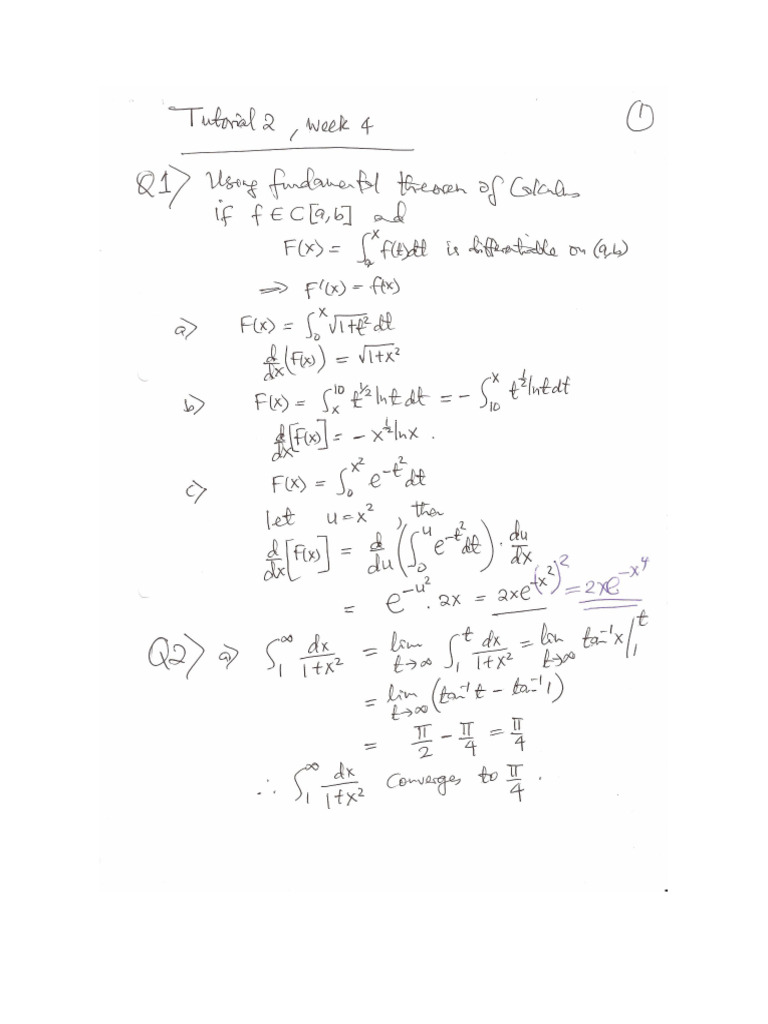 Tutorial 2, Week 4
①
Q1> Using fundamental theorem of Calculus
if f ∈ C[a,b] and
F(x) = ∫ₐˣ f(t)dt is differentiable on (a,b)
⇒ F'(x) = f(x)
a> F(x) = ∫₀ˣ √(1+t²) dt
d/dx (F(x)) = √(1+x²)
b> F(x) = ∫ₓ¹⁰ t^(1/2) ln t dt = - ∫₁₀ˣ t^(1/2) ln t dt
d/dx [F(x)] = - x^(1/2) ln x .
c> F(x) = ∫₀^(x²) e^(-t²) dt
let u = x² , then
d/dx [F(x)] = d/du (∫₀ᵘ e^(-t²) dt) · du/dx
= e^(-u²) · 2x = 2xe^(-(x²)²) = 2xe^(-x⁴)
Q2> a> ∫₁^∞ dx/(1+x²) = lim t→∞ ∫₁ᵗ dx/(1+x²) = lim t→∞ tan⁻¹x |₁ᵗ
= lim t→∞ (tan⁻¹ t - tan⁻¹ 1)
= π/2 - π/4 = π/4
∴ ∫₁^∞ dx/(1+x²) Converges to π/4 .